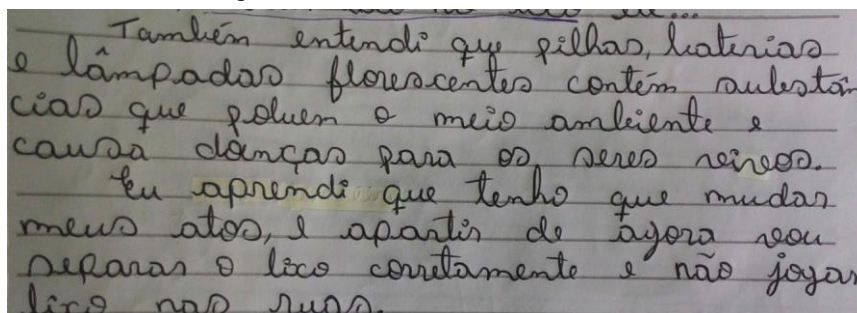 Também entendi que pilhas, baterias
e lâmpadas florescentes contém substân
cias que poluem o meio ambiente e
causa doenças para os seres veivos.
Eu aprendi que tenho que mudar
meus atos, e apartir de agora vou
separar o lixo corretamente e não jogar
lixo nas ruas.